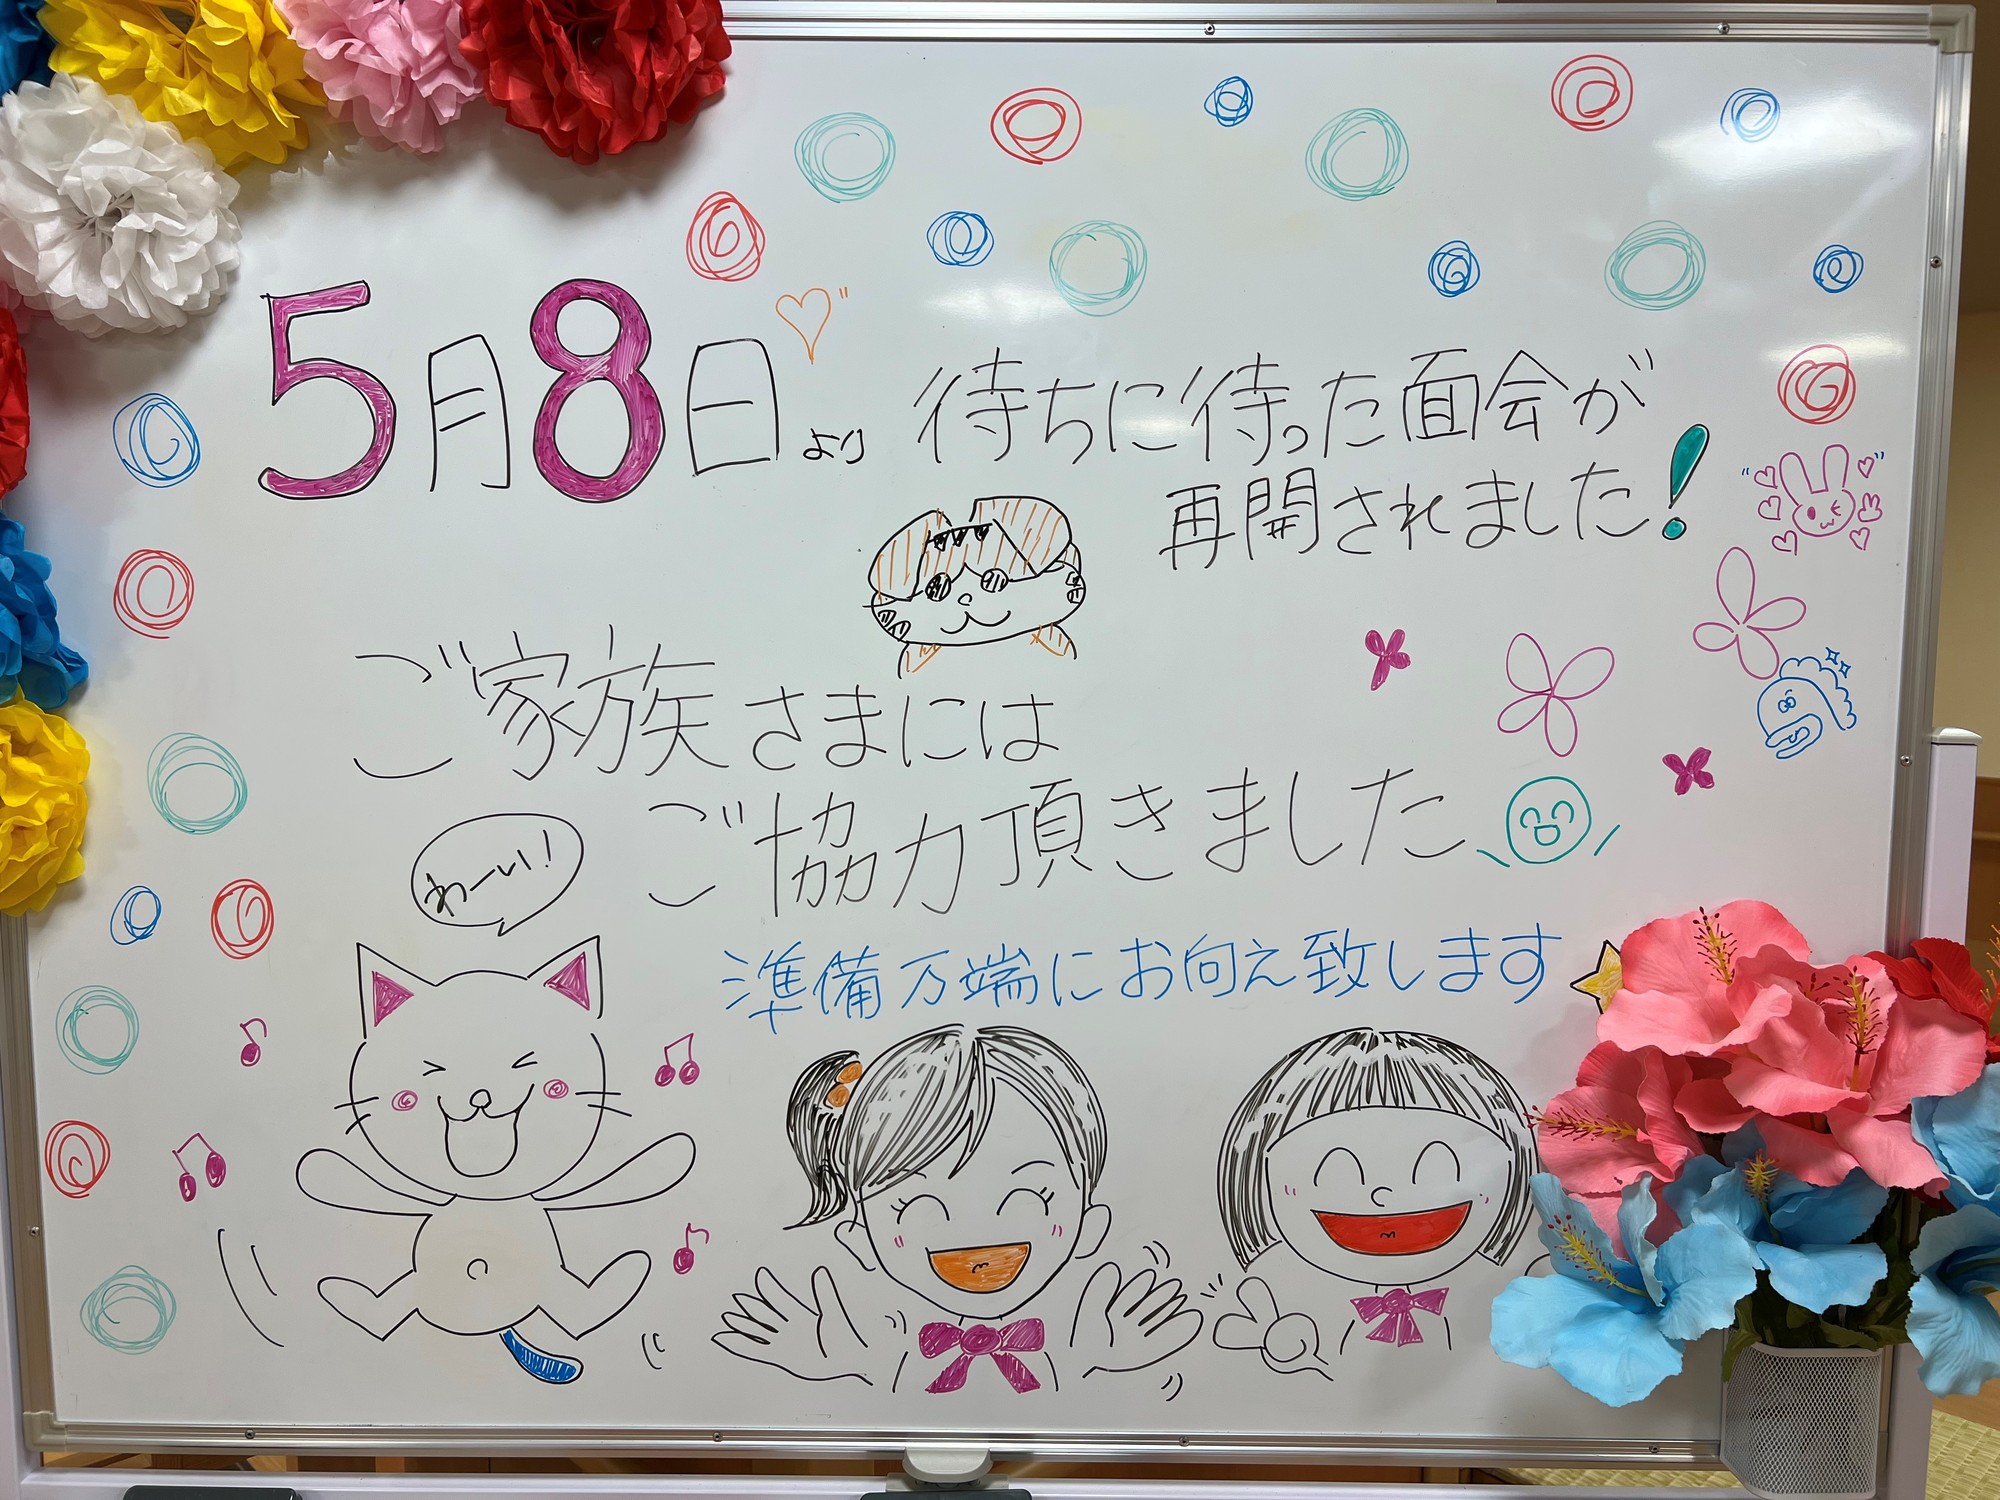 5月8日より 待ちに待った面会が
再開されました!
ご家族さまには
ご協力頂きました
わーい!
準備万端にお向え致します